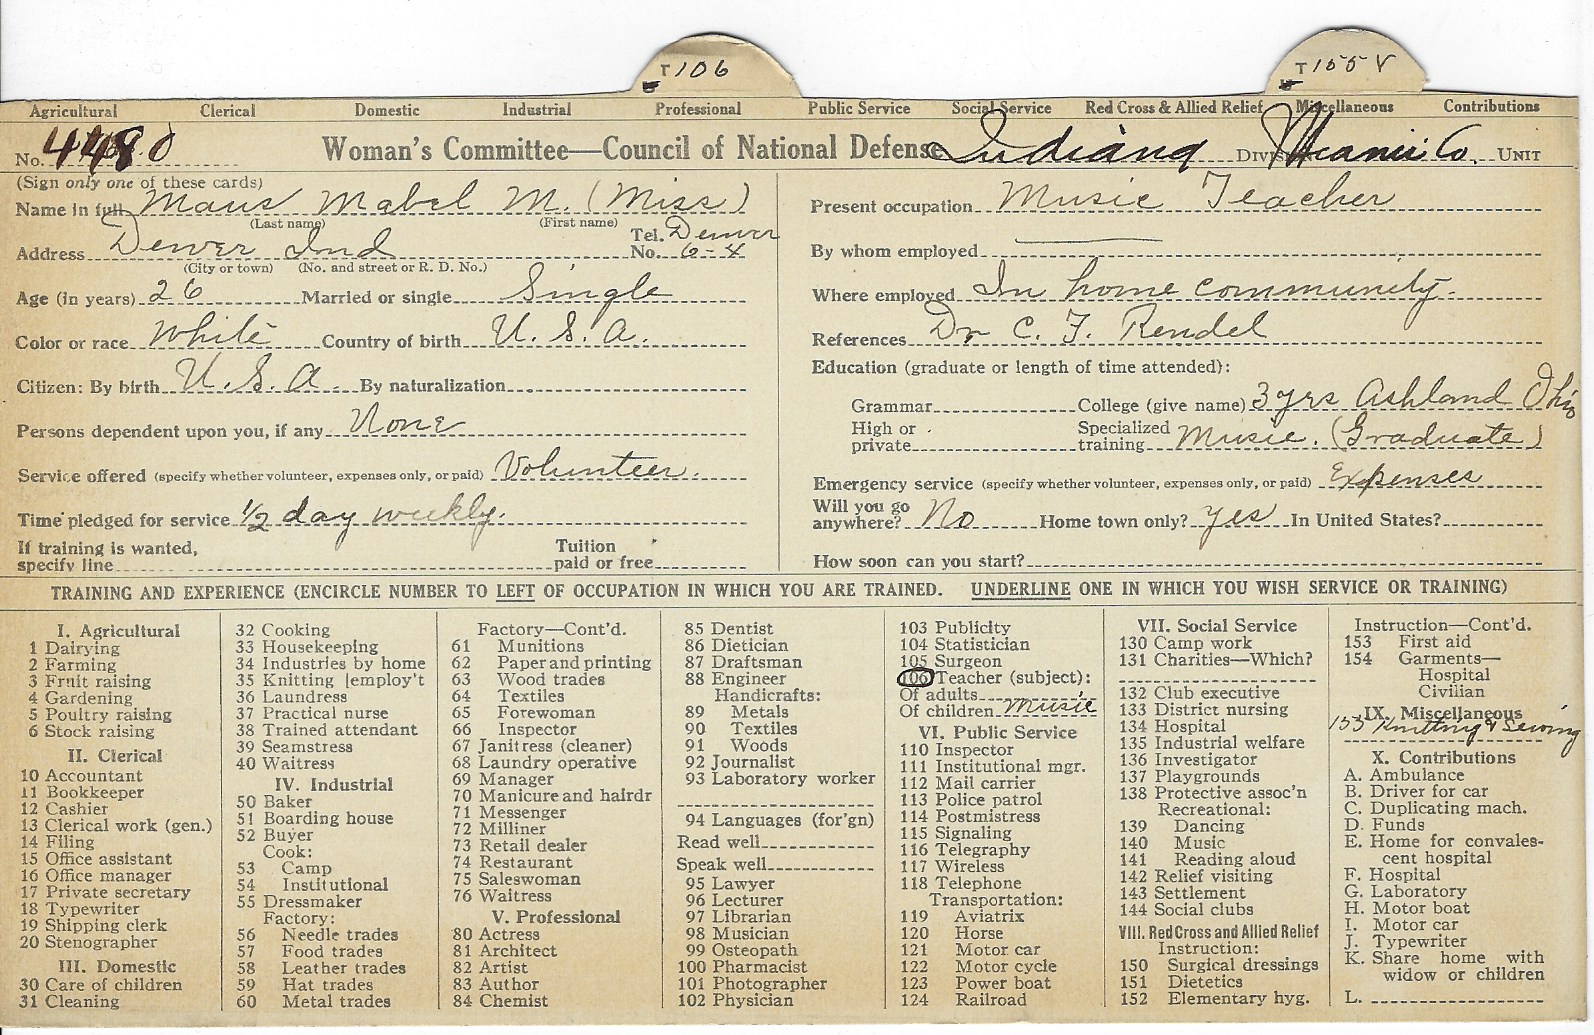 T 106
T 155 V
Agricultural Clerical Domestic Industrial Professional Public Service Social Service Red Cross & Allied Relief Miscellaneous Contributions
No. 4480 Woman's Committee—Council of National Defense Indiana Division Miami Co. Unit
(Sign only one of these cards)
Name in full Maus Mabel M. (Miss)
(Last name) (First name)
Address Denver Ind Tel. No. Denver 6-4
(City or town) (No. and street or R. D. No.)
Age (in years) 26 Married or single Single
Color or race White Country of birth U. S. A.
Citizen: By birth U. S. A. By naturalization
Persons dependent upon you, if any None
Service offered (specify whether volunteer, expenses only, or paid) Volunteer.
Time pledged for service 1/2 day weekly.
If training is wanted, specify line Tuition paid or free
Present occupation Music Teacher
By whom employed
Where employed In home community.
References Dr C. F. Rendel
Education (graduate or length of time attended):
Grammar College (give name) 3 yrs Ashland Ohio
High or private Specialized training Music. (Graduate)
Emergency service (specify whether volunteer, expenses only, or paid) Expenses
Will you go anywhere? No Home town only? Yes In United States?
How soon can you start?
TRAINING AND EXPERIENCE (ENCIRCLE NUMBER TO LEFT OF OCCUPATION IN WHICH YOU ARE TRAINED. UNDERLINE ONE IN WHICH YOU WISH SERVICE OR TRAINING)
I. Agricultural
1 Dairying
2 Farming
3 Fruit raising
4 Gardening
5 Poultry raising
6 Stock raising
II. Clerical
10 Accountant
11 Bookkeeper
12 Cashier
13 Clerical work (gen.)
14 Filing
15 Office assistant
16 Office manager
17 Private secretary
18 Typewriter
19 Shipping clerk
20 Stenographer
III. Domestic
30 Care of children
31 Cleaning
32 Cooking
33 Housekeeping
34 Industries by home
35 Knitting [employ't
36 Laundress
37 Practical nurse
38 Trained attendant
39 Seamstress
40 Waitress
IV. Industrial
50 Baker
51 Boarding house
52 Buyer
Cook:
53 Camp
54 Institutional
55 Dressmaker
Factory:
56 Needle trades
57 Food trades
58 Leather trades
59 Hat trades
60 Metal trades
Factory—Cont'd.
61 Munitions
62 Paper and printing
63 Wood trades
64 Textiles
65 Forewoman
66 Inspector
67 Janitress (cleaner)
68 Laundry operative
69 Manager
70 Manicure and hairdr
71 Messenger
72 Milliner
73 Retail dealer
74 Restaurant
75 Saleswoman
76 Waitress
V. Professional
80 Actress
81 Architect
82 Artist
83 Author
84 Chemist
85 Dentist
86 Dietician
87 Draftsman
88 Engineer
Handicrafts:
89 Metals
90 Textiles
91 Woods
92 Journalist
93 Laboratory worker
94 Languages (for'gn)
Read well
Speak well
95 Lawyer
96 Lecturer
97 Librarian
98 Musician
99 Osteopath
100 Pharmacist
101 Photographer
102 Physician
103 Publicity
104 Statistician
105 Surgeon
106 Teacher (subject):
Of adults
Of children Music
VI. Public Service
110 Inspector
111 Institutional mgr.
112 Mail carrier
113 Police patrol
114 Postmistress
115 Signaling
116 Telegraphy
117 Wireless
118 Telephone
Transportation:
119 Aviatrix
120 Horse
121 Motor car
122 Motor cycle
123 Power boat
124 Railroad
VII. Social Service
130 Camp work
131 Charities—Which?
132 Club executive
133 District nursing
134 Hospital
135 Industrial welfare
136 Investigator
137 Playgrounds
138 Protective assoc'n
Recreational:
139 Dancing
140 Music
141 Reading aloud
142 Relief visiting
143 Settlement
144 Social clubs
VIII. Red Cross and Allied Relief
Instruction:
150 Surgical dressings
151 Dietetics
152 Elementary hyg.
Instruction—Cont'd.
153 First aid
154 Garments—
Hospital
Civilian
IX. Miscellaneous
155 Knitting & Sewing
X. Contributions
A. Ambulance
B. Driver for car
C. Duplicating mach.
D. Funds
E. Home for convales-
cent hospital
F. Hospital
G. Laboratory
H. Motor boat
I. Motor car
J. Typewriter
K. Share home with
widow or children
L.